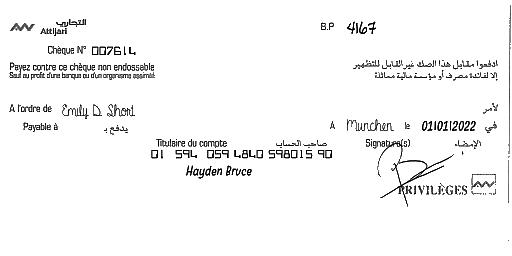 التجاري
Attijari
B.P 4167
Chèque N° 007614
Payez contre ce chèque non endossable
Sauf au profit d'une banque ou d'un organisme assimilé
ادفعوا مقابل هذا الصك غير القابل للتظهير
إلا لفائدة مصرف أو مؤسسة مالية مماثلة
A l'ordre de Emily D. Short لأمر
Payable à يدفع بـ
A Munchen le 01/01/2022 في
Titulaire du compte صاحب الحساب Signature(s) الإمضاء
01 594 059 4840 598015 90
Hayden Bruce
PRIVILÈGES